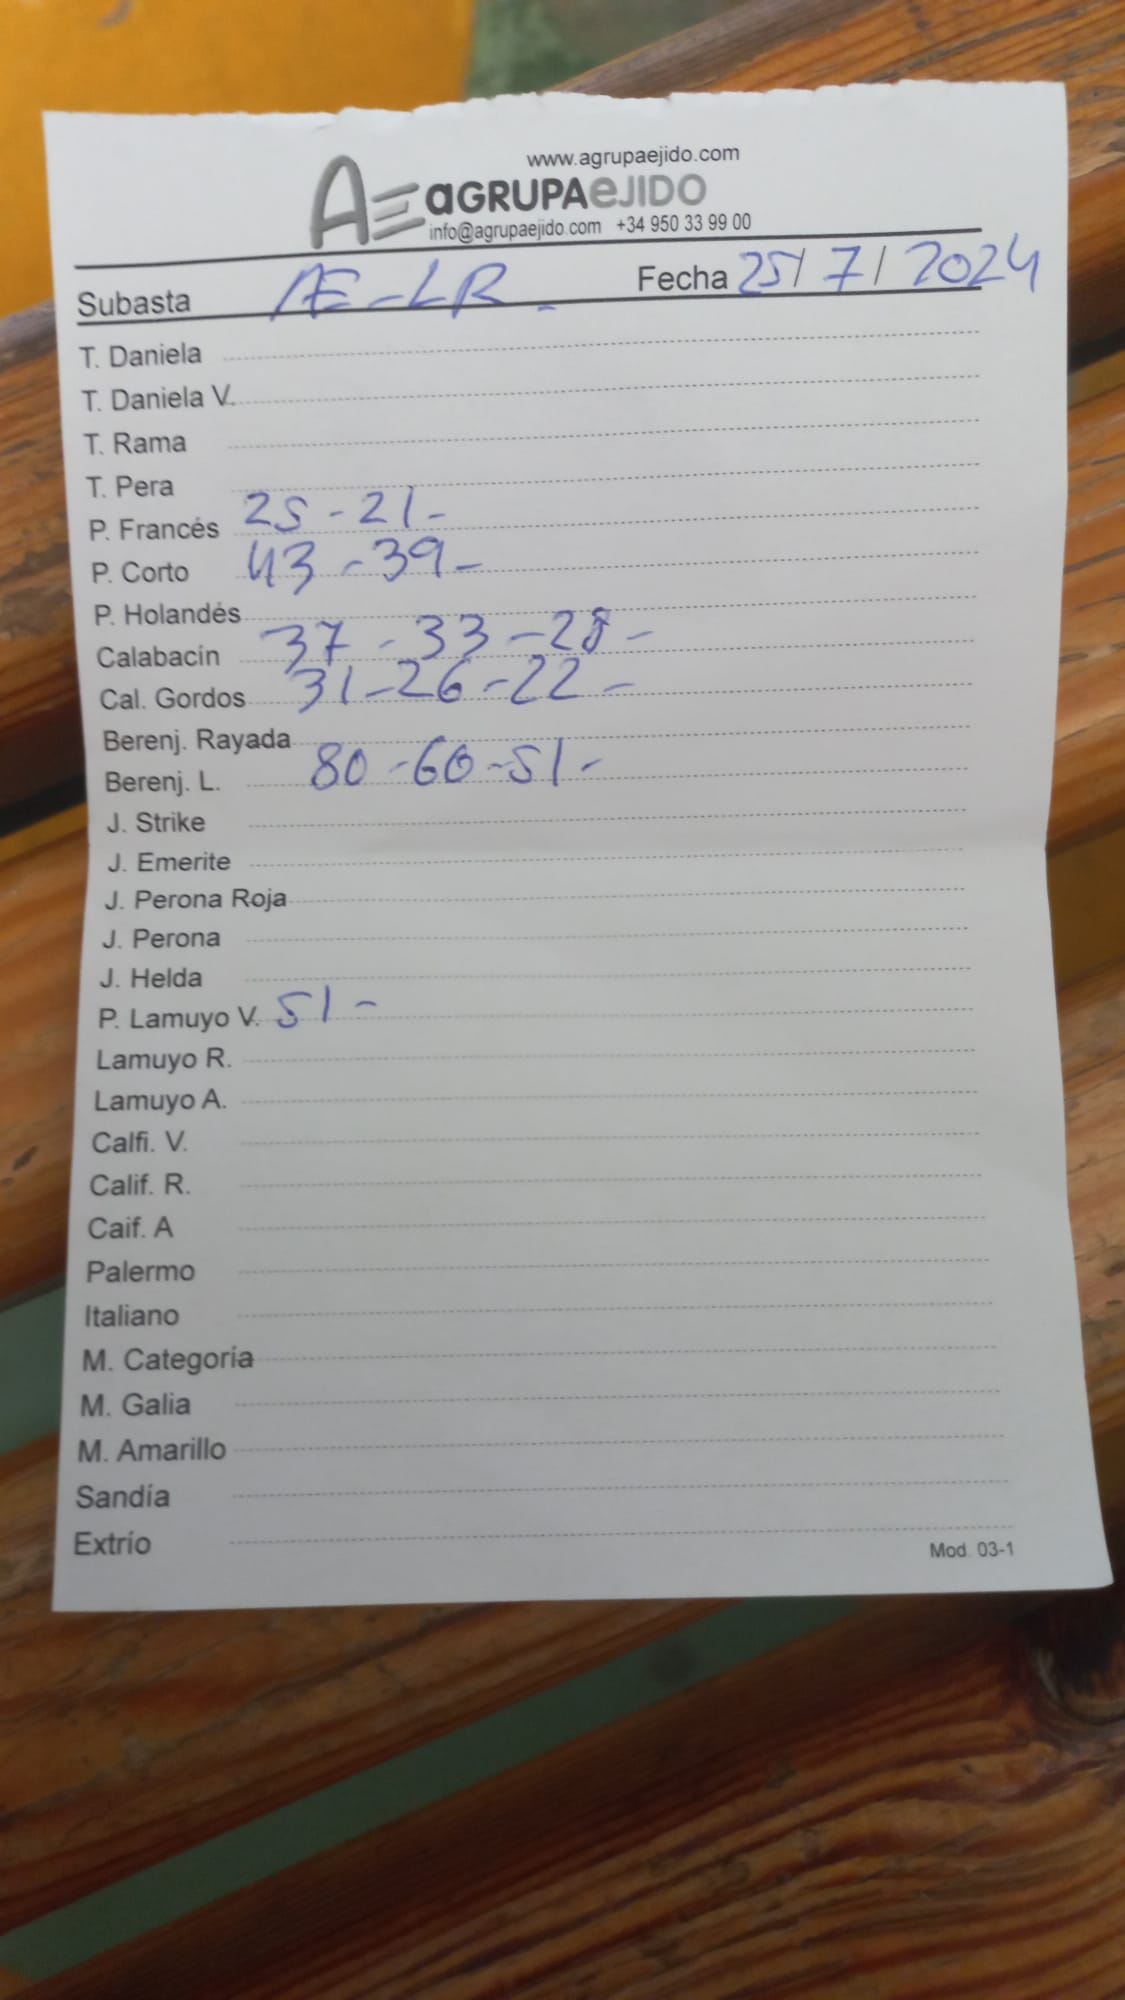 www.agrupaejido.com
AE aGRUPAeJIDO
info@agrupaejido.com +34 950 33 99 00
Subasta AE-LR- Fecha 25/7/2024
T. Daniela
T. Daniela V.
T. Rama
T. Pera
P. Francés 25-21-
P. Corto 43-39-
P. Holandés
Calabacín 37-33-28-
Cal. Gordos 31-26-22-
Berenj. Rayada
Berenj. L. 80-60-51-
J. Strike
J. Emerite
J. Perona Roja
J. Perona
J. Helda
P. Lamuyo V. 51-
Lamuyo R.
Lamuyo A.
Calfi. V.
Calif. R.
Caif. A
Palermo
Italiano
M. Categoría
M. Galia
M. Amarillo
Sandía
Extrío
Mod. 03-1